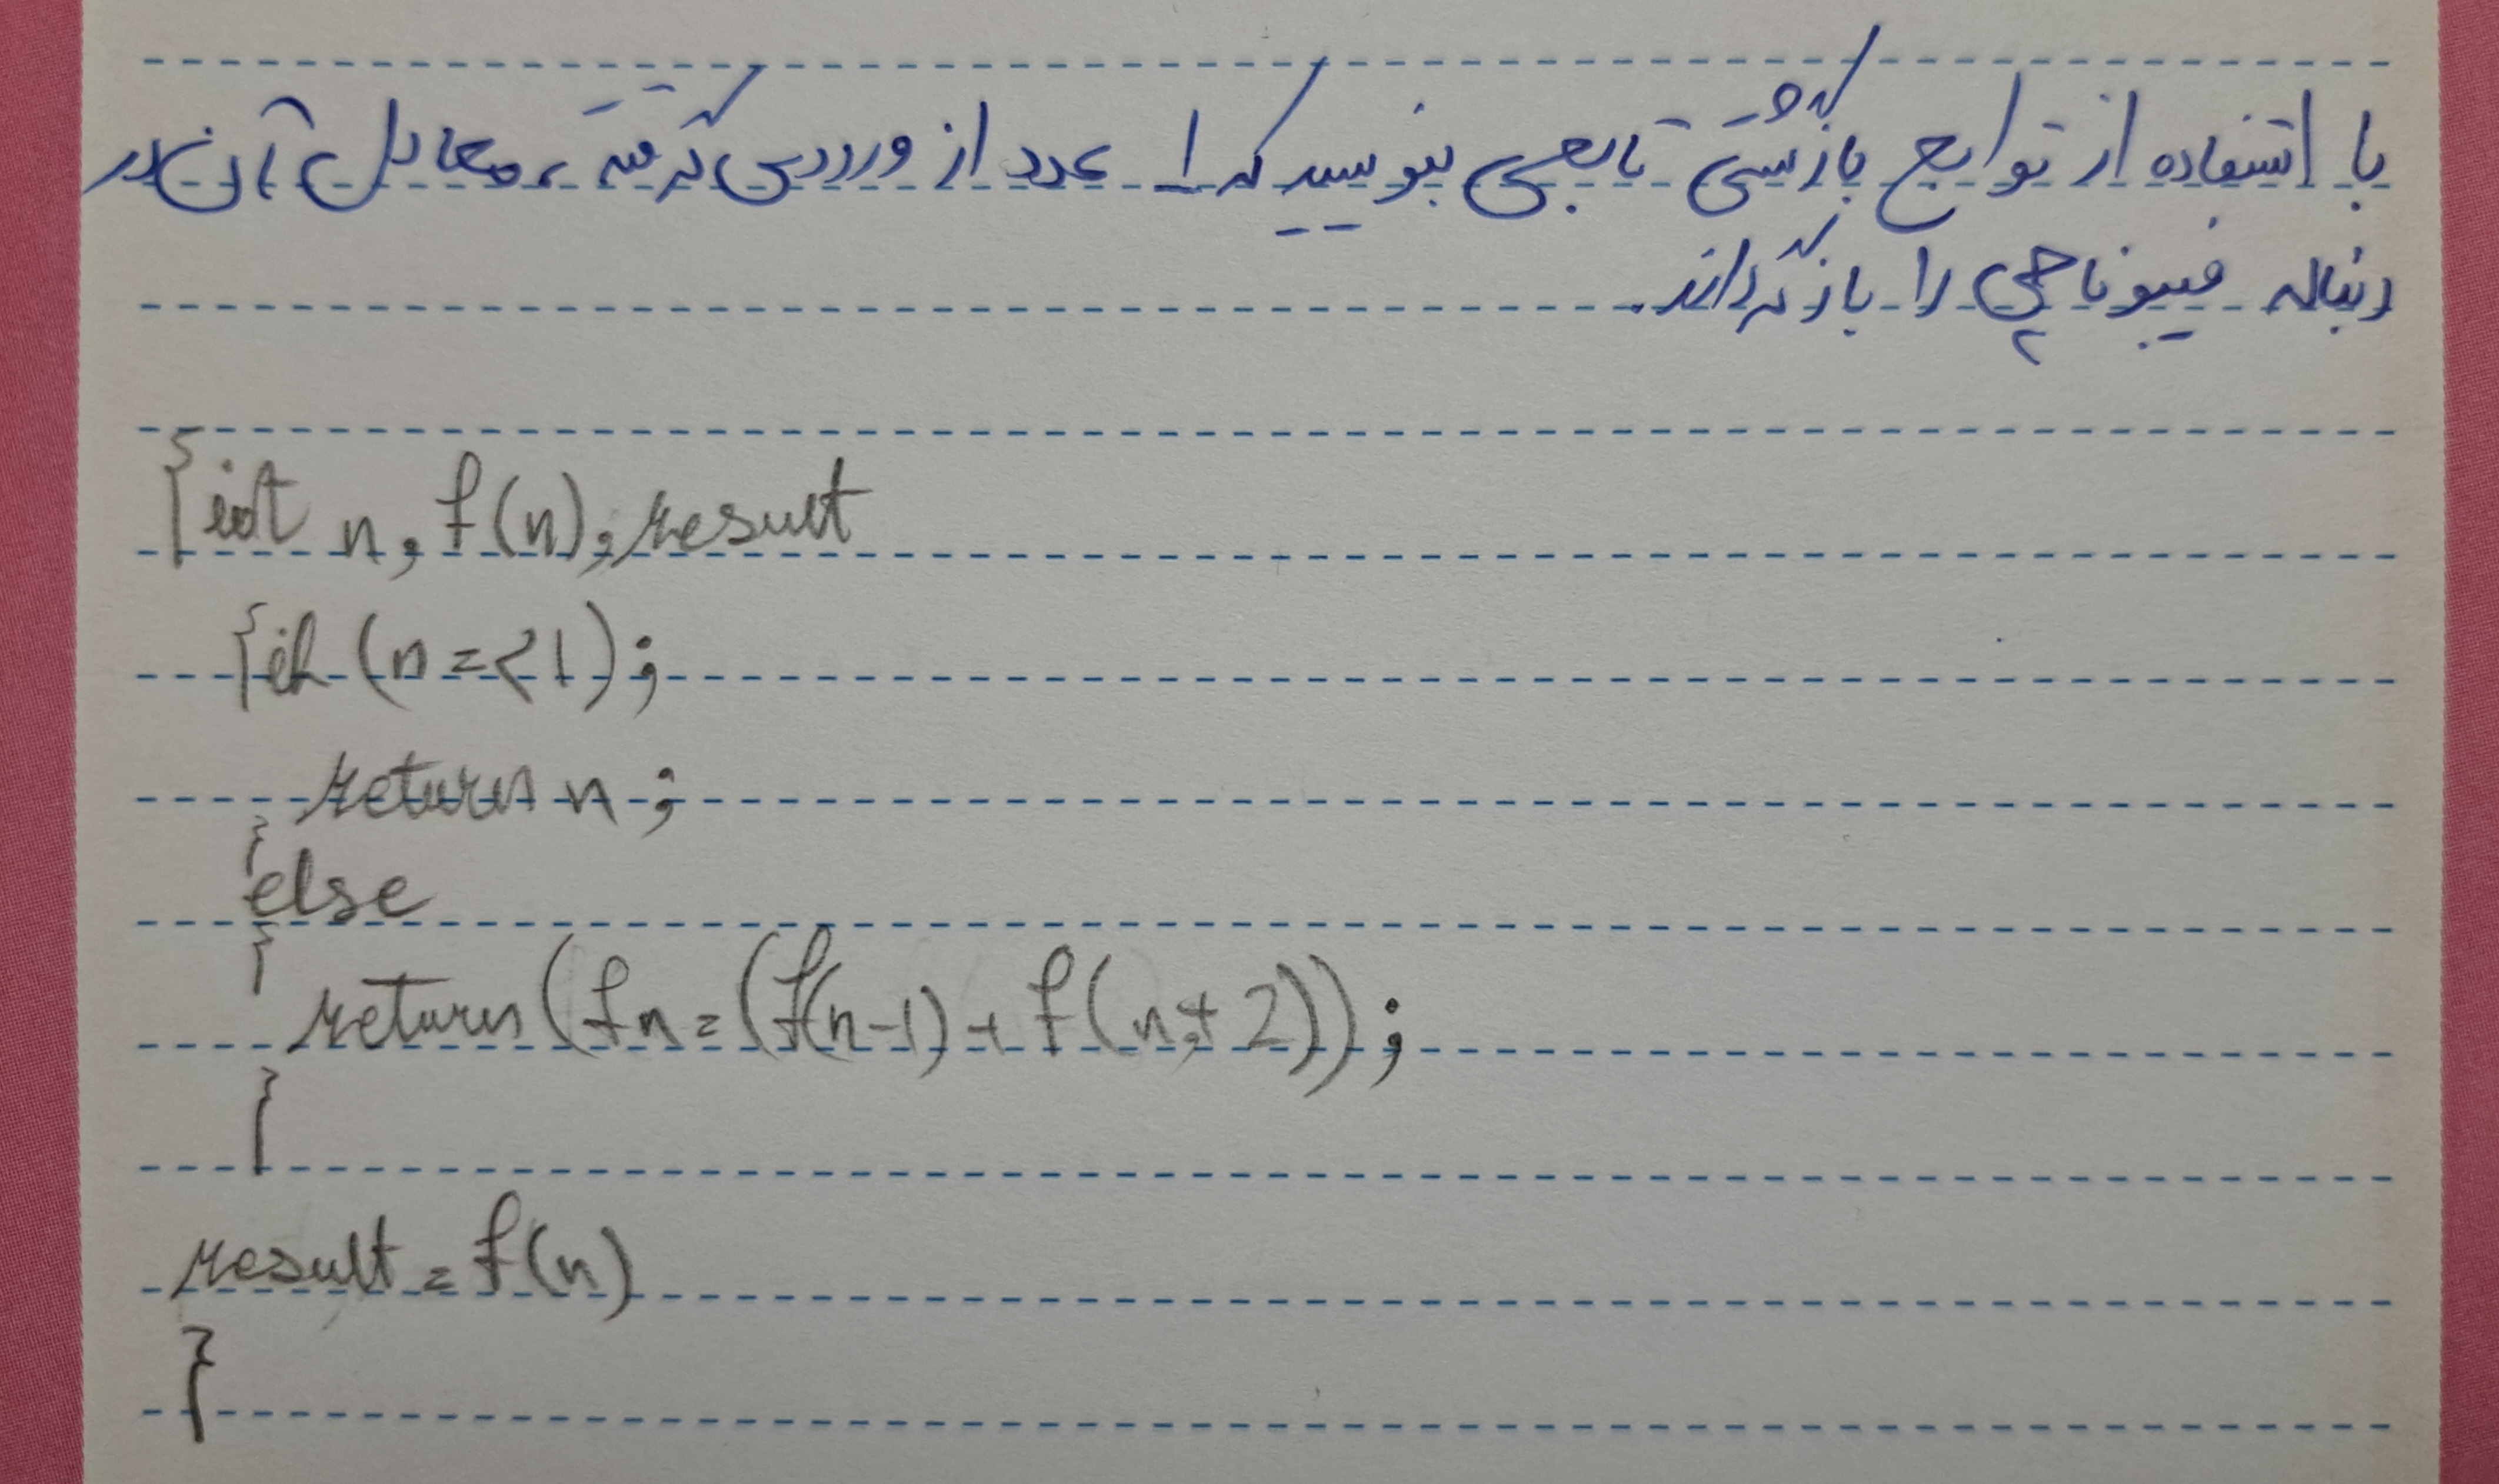 با استفاده از توابع بازگشتی تابعی بنویسید که ۱ عدد از ورودی گرفته، معادل آن در
دنباله فیبوناچی را بازگرداند.
{int n, f(n); result
{if (n =< 1);
return n;
}else
{
return (fn = (f(n-1) + f(n+2));
}
result = f(n)
}